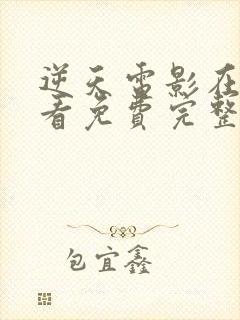 逆天雷影在
看免费完整
包宜鑫